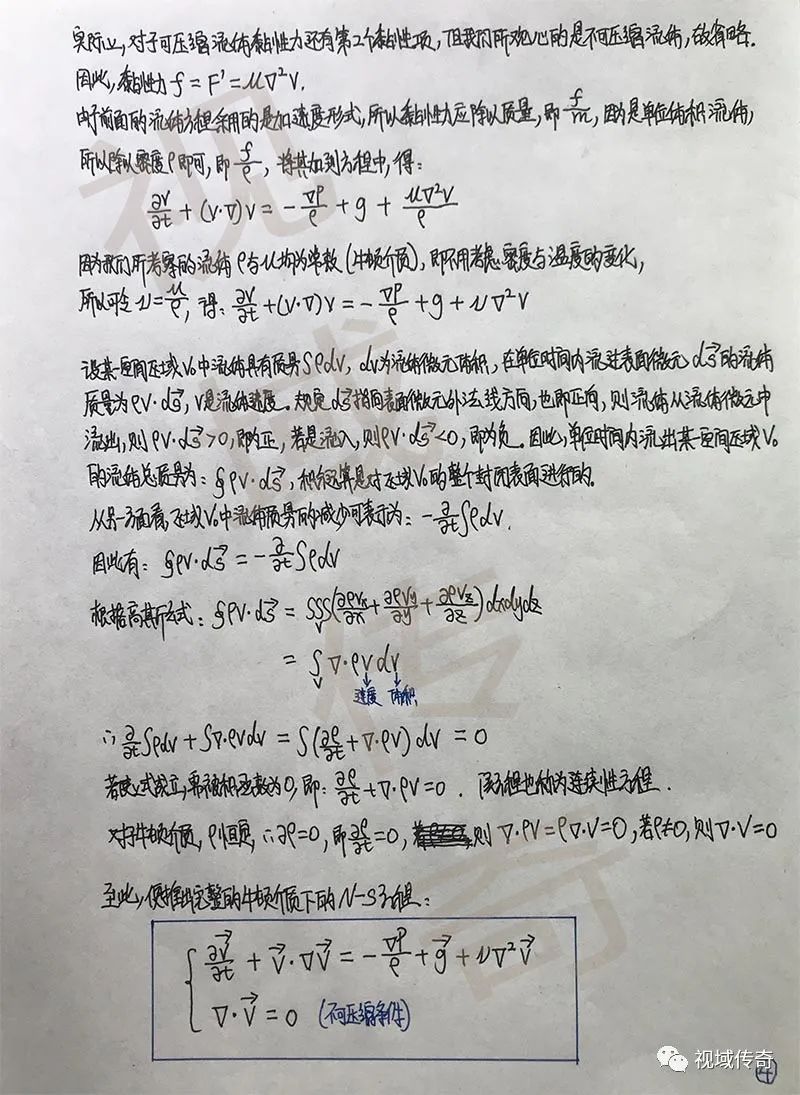 实际上,对于可压缩流体黏性力还有第2个黏性项,但我们所观心的是不可压缩流体,故省略.
因此,黏性力 f = F' = μ∇²V.
由于前面的流体方程采用的是加速度形式,所以黏性力应除以质量,即 f/m,因为是单位体积流体,
所以除以密度ρ即可,即 f/ρ,将其加到方程中,得:
∂V/∂t + (V·∇)V = -∇P/ρ + g + μ∇²V/ρ
因为我们所考察的流体ρ与μ均为常数(牛顿介质),即不用考虑密度与温度的变化,
所以可令 ν=μ/ρ,得: ∂V/∂t+(V·∇)V = -∇P/ρ + g + ν∇²V
设某一空间区域V₀中流体具有质量∫ρdv,dv为流体微元体积,在单位时间内流过表面微元 dS⃗的流体
质量为ρV·dS⃗,V是流体速度.规定dS⃗指向表面微元外法线方向,也即正向,则流体从流体微元中
流出,则ρV·dS⃗>0,即为正,若是流入,则ρV·dS⃗<0,即为负.因此,单位时间内流出某一空间区域V₀
的流体总质量为:∮ρV·dS⃗,积分运算是对区域V₀的整个封闭表面进行的.
从另一方面看,区域V₀中流体质量的减少可表示为: -∂/∂t∫ρdv.
因此有: ∮ρV·dS⃗ = -∂/∂t∫ρdv
根据高斯公式:∮ρV·dS⃗ = ∭_V(∂ρVx/∂x+∂ρVy/∂y+∂ρVz/∂z)dxdydz
= ∫_V ∇·ρVdv
速度 体积
∴ ∂/∂t∫ρdv+∫∇·ρVdv = ∫(∂ρ/∂t+∇·ρV)dv = 0
若使上式成立,需被积函数为0,即: ∂ρ/∂t+∇·ρV=0. 该方程也称为连续性方程.
对于牛顿介质,ρ恒定,∴∂ρ=0,即∂ρ/∂t=0,则∇·ρV=ρ∇·V=0,若ρ≠0,则∇·V=0
至此,便推出完整的牛顿介质下的N-S方程:
∂V⃗/∂t + V⃗·∇V⃗ = -∇P/ρ + g⃗ + ν∇²V⃗
∇·V⃗ = 0 (不可压缩条件)
视域传奇
视域传奇
4